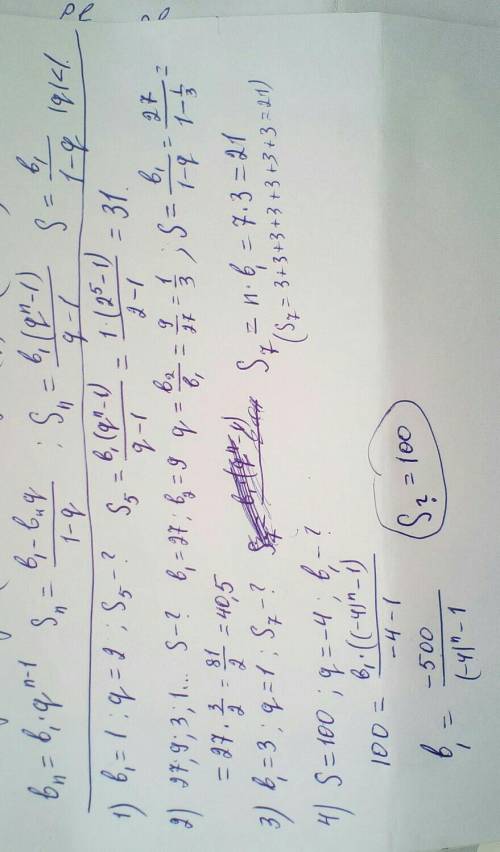 bₙ = b₁·qⁿ⁻¹ Sₙ = (b₁ - bₙq)/(1-q) ; Sₙ = b₁(qⁿ-1)/(q-1) S = b₁/(1-q) |q|<1.
1) b₁ = 1 ; q = 2 ; S₅ - ? S₅ = b₁(qⁿ-1)/(q-1) = 1·(2⁵-1)/(2-1) = 31.
2) 27; 9; 3; 1... S-? b₁ = 27; b₂ = 9 q = b₂/b₁ = 9/27 = 1/3 ; S = b₁/(1-q) = 27/(1-1/3) =
= 27·3/2 = 81/2 = 40,5
3) b₁ = 3 ; q = 1 ; S₇ - ? S₇ = n·b₁ = 7·3 = 21
(S₇ = 3+3+3+3+3+3+3 = 21)
4) S = 100 ; q = -4 ; b₁ - ?
100 = b₁·((-4)ⁿ-1)/(-4-1)
b₁ = -500/((-4)ⁿ-1) S? = 100